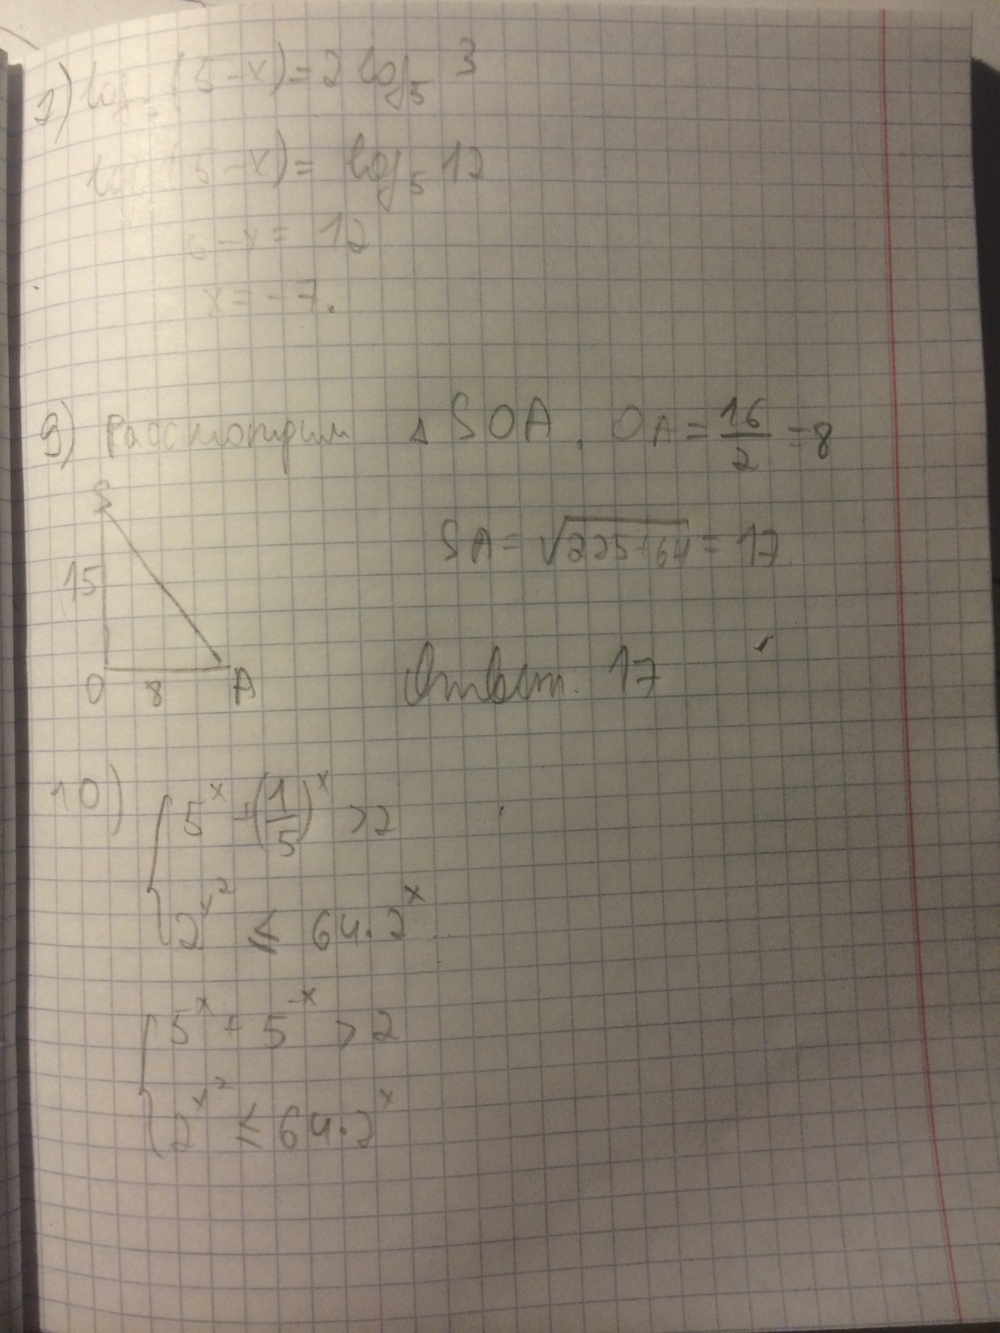 1) log₅(5-x)=2log₅ 3
log (5-x)= log₅ 12
5-x= 12
x=-7.
9) рассмотрим △ SOA. OA=16/2=8
S
15
SA=√225+64=17
O 8 A
Ответ. 17
10) { 5^x+(1/5)^x >2
2^x² ≤ 64·2^x
{ 5^x+5^-x >2
2^x² ≤64·2^x